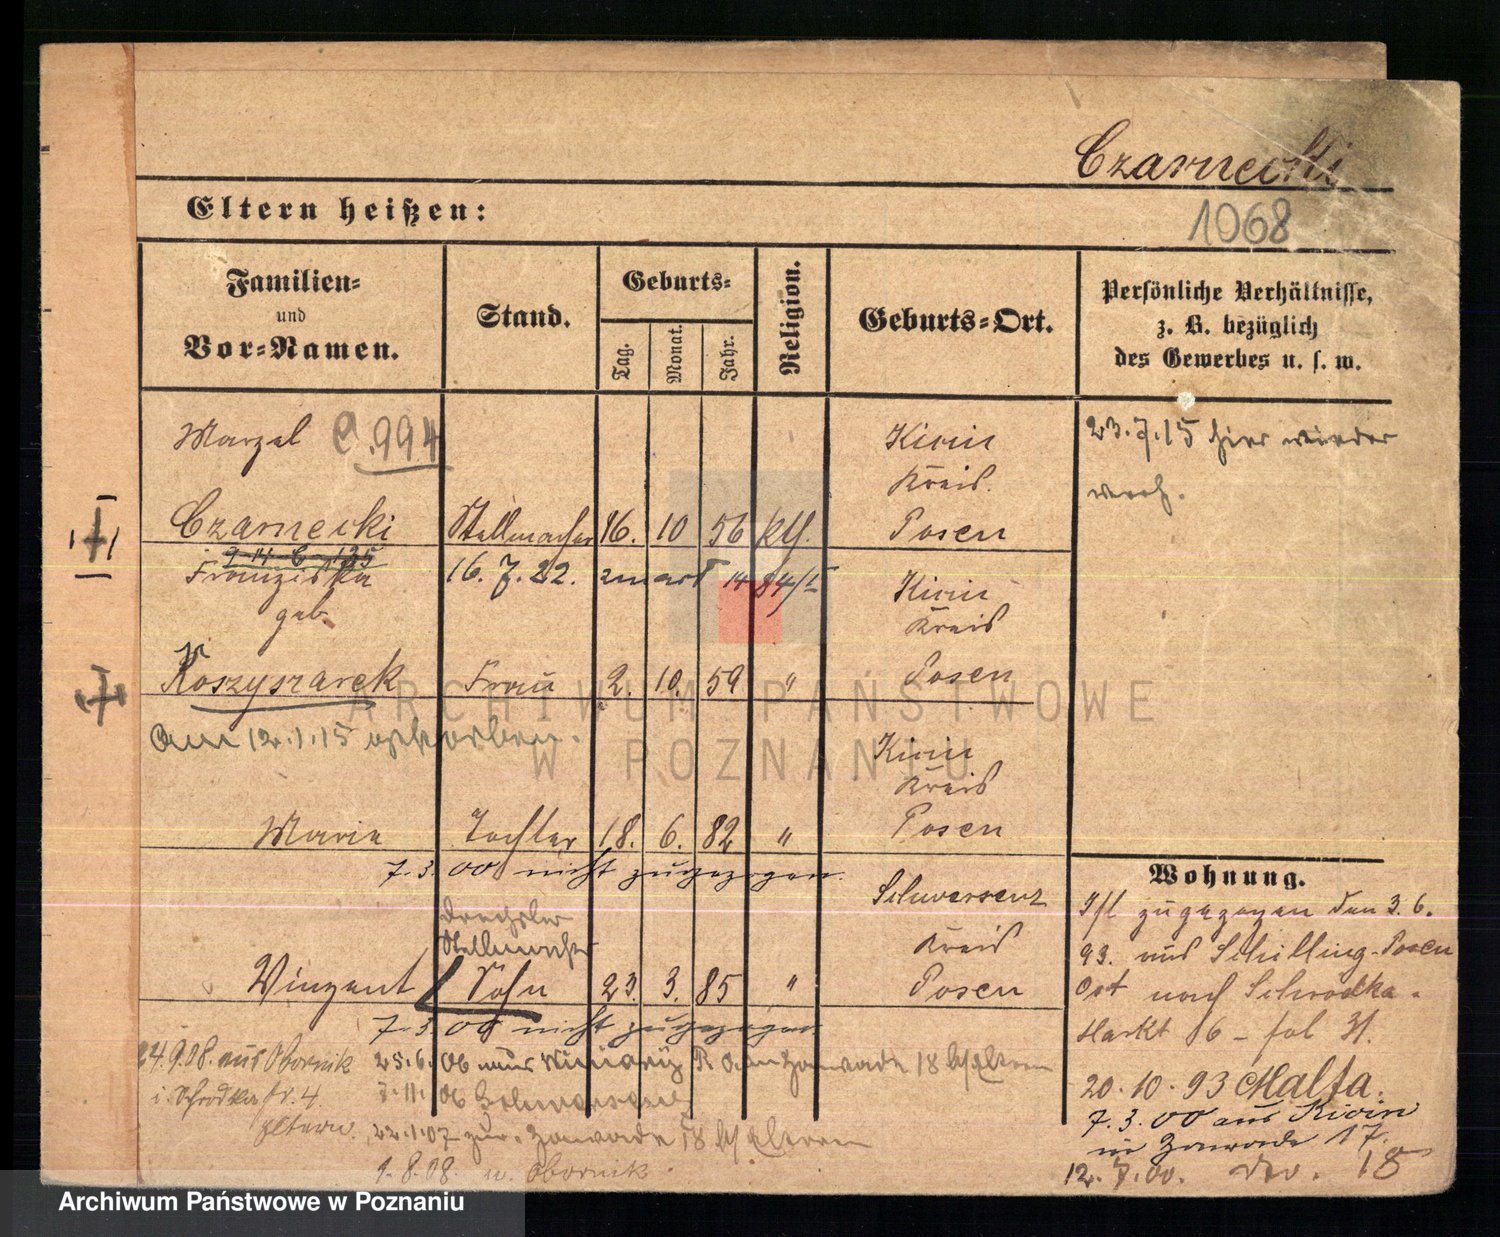 Czarnecki
Eltern heißen:
1068
Familien-
und
Vor-Namen.
Stand.
Geburts-
Tag.
Monat.
Jahr.
Religion.
Geburts-Ort.
Persönliche Verhältnisse,
z. B. bezüglich
des Gewerbes u. s. w.
Marzel C.994
Czarnecki Stellmacher 16. 10 56 kth.
Kicin
Kreis
Posen
23.7.15 hier wieder
9 14 C 135
Franziska
geb.
Koszyszarek Frau 2. 10. 59 "
16.7.22. 14 84/15
Kicin
Kreis
Posen
Am 12.1.15 gestorben.
Maria Tochter 18. 6. 82 "
Kicin
Kreis
Posen
7.3.00 nicht zugezogen.
Drechsler
Stellmacher
Winzent Sohn 23. 3. 85 "
Schwersenz
Kreis
Posen
7.3.00 nicht zugezogen
24.9.08. aus Obornik
i. Schrodka Str. 4
Eltern.
25.6.06 aus 18 b/Eltern
7.11.06
22.1.07 zur. Zawade 18 b/Eltern
1.8.08. n. Obornik.
Wohnung.
Ist zugezogen den 3.6.
93. aus Schilling-Posen
Ost nach Schrodka-
Markt 6 - fol 31.
20.10.93 Malta.
7.3.00 aus Kicin
in Zawade 17.
12.7.00. dto. 18
ARCHIWUM PAŃSTWOWE
W POZNANIU
Archiwum Państwowe w Poznaniu